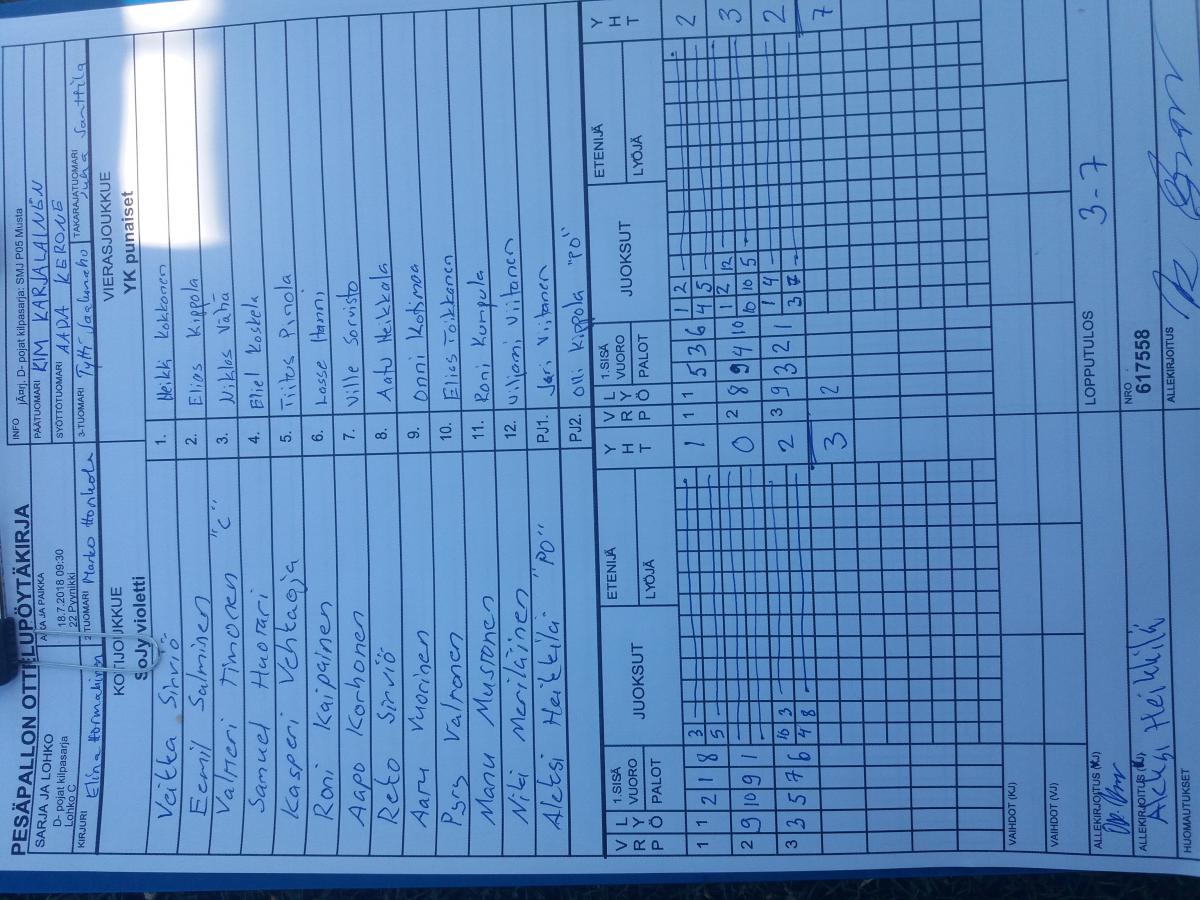 PESÄPALLON OTTELUPÖYTÄKIRJA
SARJA JA LOHKO
D- pojat kilpasarja
Lohko C
AIKA JA PAIKKA
18.7.2018 09:30
22 Pyynikki
INFO jÄarj. D- pojat kilpasarja: SMJ P05 Musta
PÄÄTUOMARI KIM KARJALAINEN
SYÖTTÖTUOMARI AADA KERONE
KIRJURI Elina
2-TUOMARI Marko Honkola
3-TUOMARI Tytti
TAKARAJATUOMARI Juha Santtila
KOTIJOUKKUE
SoJy violetti
VIERASJOUKKUE
YK punaiset
Veikka Sirviö 1. Heikki Kokkonen
Eemil Salminen 2. Elias Kippola
Valtteri Timonen "C" 3. Niklas Vähä
Samuel Huotari 4. Eliel Koskela
Kasperi Vehkaoja 5. Tiitus Pinola
Roni Kaipainen 6. Lasse Hanni
Aapo Korhonen 7. Ville Sorvisto
Reko Sirviö 8. Aatu Heikkala
Aaru Vuorinen 9. Onni Kotimaa
Pyry Valtonen 10. Elias Toikkanen
Manu Mustonen 11. Roni Kumpula
Niki Meriläinen 12. Viljami Viitanen
Aleksi Heikkilä "PO" PJ1. Jari Viitanen
PJ2. Olli Kippola "PO"
V R P L Y Ö 1.SISÄ VUORO PALOT JUOKSUT ETENIJÄ LYÖJÄ Y H T V R P L Y Ö 1.SISÄ VUORO PALOT JUOKSUT ETENIJÄ LYÖJÄ Y H T
1 1 2 1 8 3 1 1 1 5 3 6 1 2 2
5 4 5
2 9 10 9 1 0 2 8 9 4 10 1 2 12 3
10 10 5
3 3 5 7 6 16 3 2 3 9 3 2 1 1 4 2
4 8 3 7
3 2 7
VAIHDOT (KJ)
VAIHDOT (VJ)
ALLEKIRJOITUS (KJ)
LOPPUTULOS 3-7
ALLEKIRJOITUS (VJ)
Aleksi Heikkilä
NRO
617558
HUOMAUTUKSET
ALLEKIRJOITUS